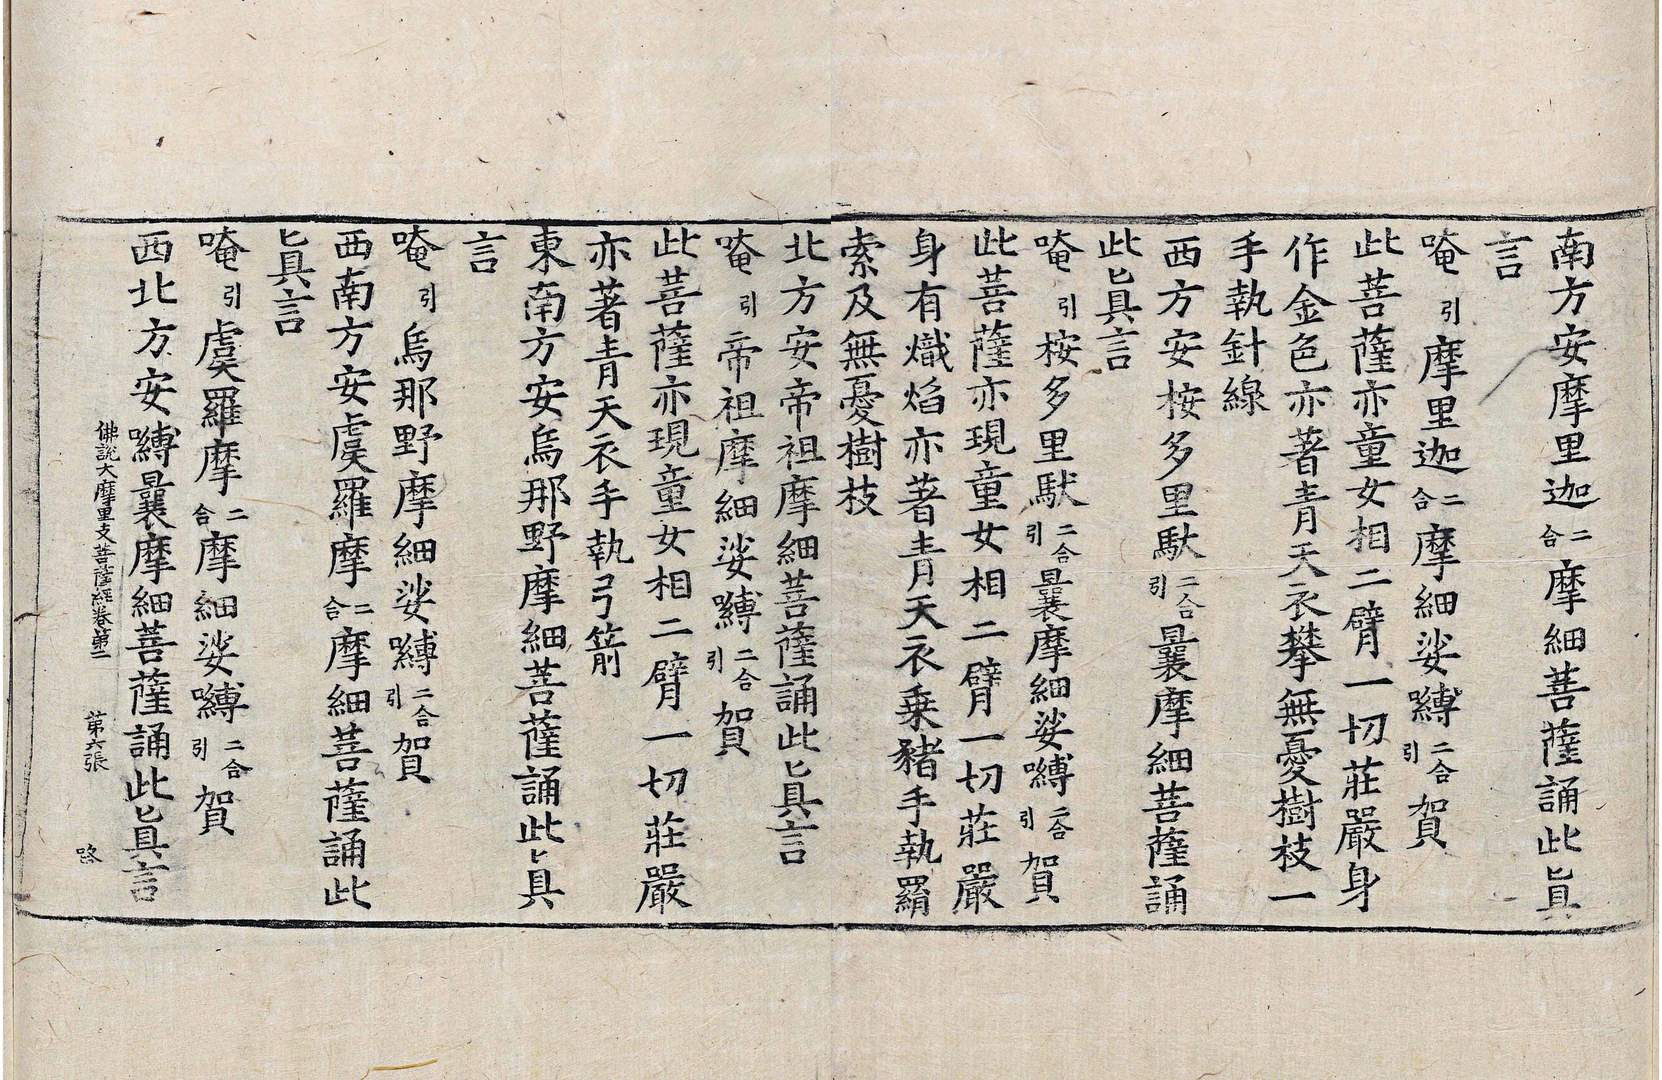 南方安摩里迦二合摩細菩薩誦此真
言
唵引摩里迦二合摩細娑嚩二合引賀
此菩薩亦童女相二臂一切莊嚴身
作金色亦著青天衣攀無憂樹枝一
手執針線
西方安桉多里馱二合引曩摩細菩薩誦
此真言
唵引桉多里馱二合引曩摩細娑嚩二合引賀
此菩薩亦現童女相二臂一切莊嚴
身有熾焰亦著青天衣乗豬手執羂
索及無憂樹枝
北方安帝祖摩細菩薩誦此真言
唵引帝祖摩細娑嚩二合引賀
此菩薩亦現童女相二臂一切莊嚴
亦著青天衣手執弓箭
東南方安烏那野摩細菩薩誦此真
言
唵引烏那野摩細娑嚩二合引賀
西南方安虞羅摩二合摩細菩薩誦此
真言
唵引虞羅摩二合摩細娑嚩二合引賀
西北方安嚩曩摩細菩薩誦此真言
佛說大摩里支菩薩經卷第二 第六張